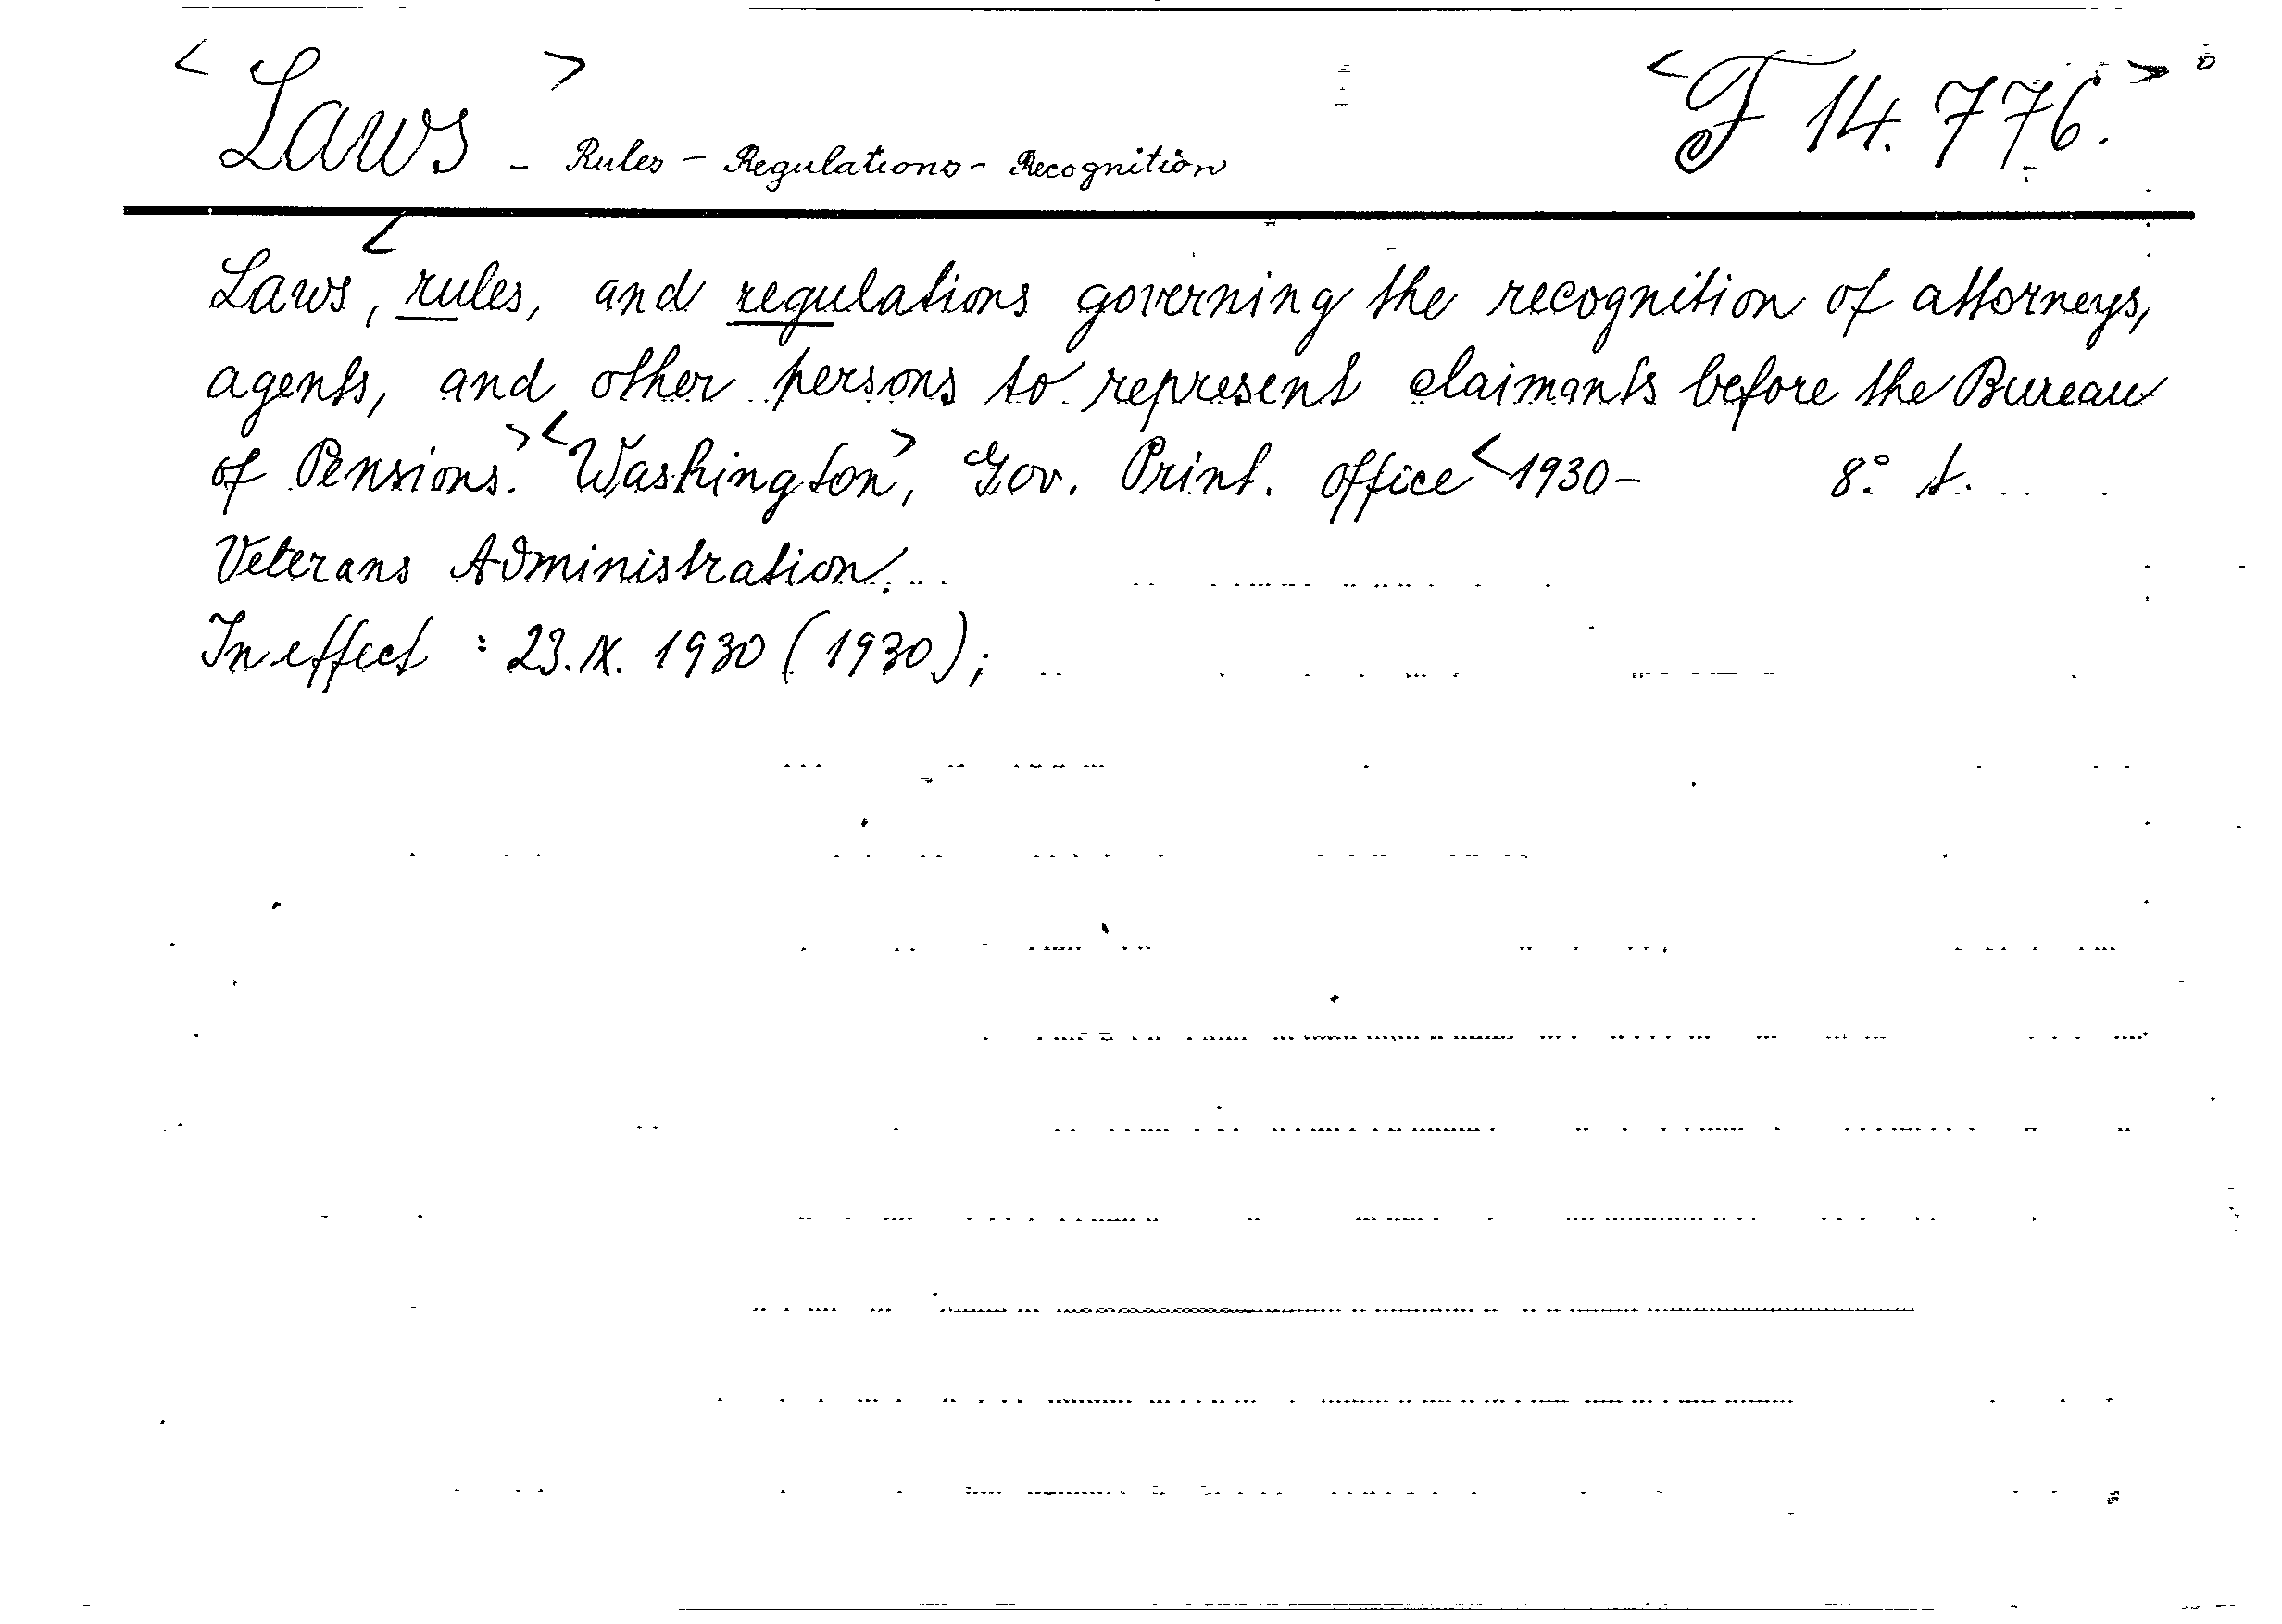 <Laws> - Rules - Regulations - Recognition <F 14.776.>°
Laws, <rules, and regulations governing the recognition of attorneys,
agents, and other persons to represent claimants before the Bureau
of Pensions.> <Washington>, Gov. Print. office <1930- 8° t.
Veterans Administration.
In effect : 23.IX. 1930 (1930);